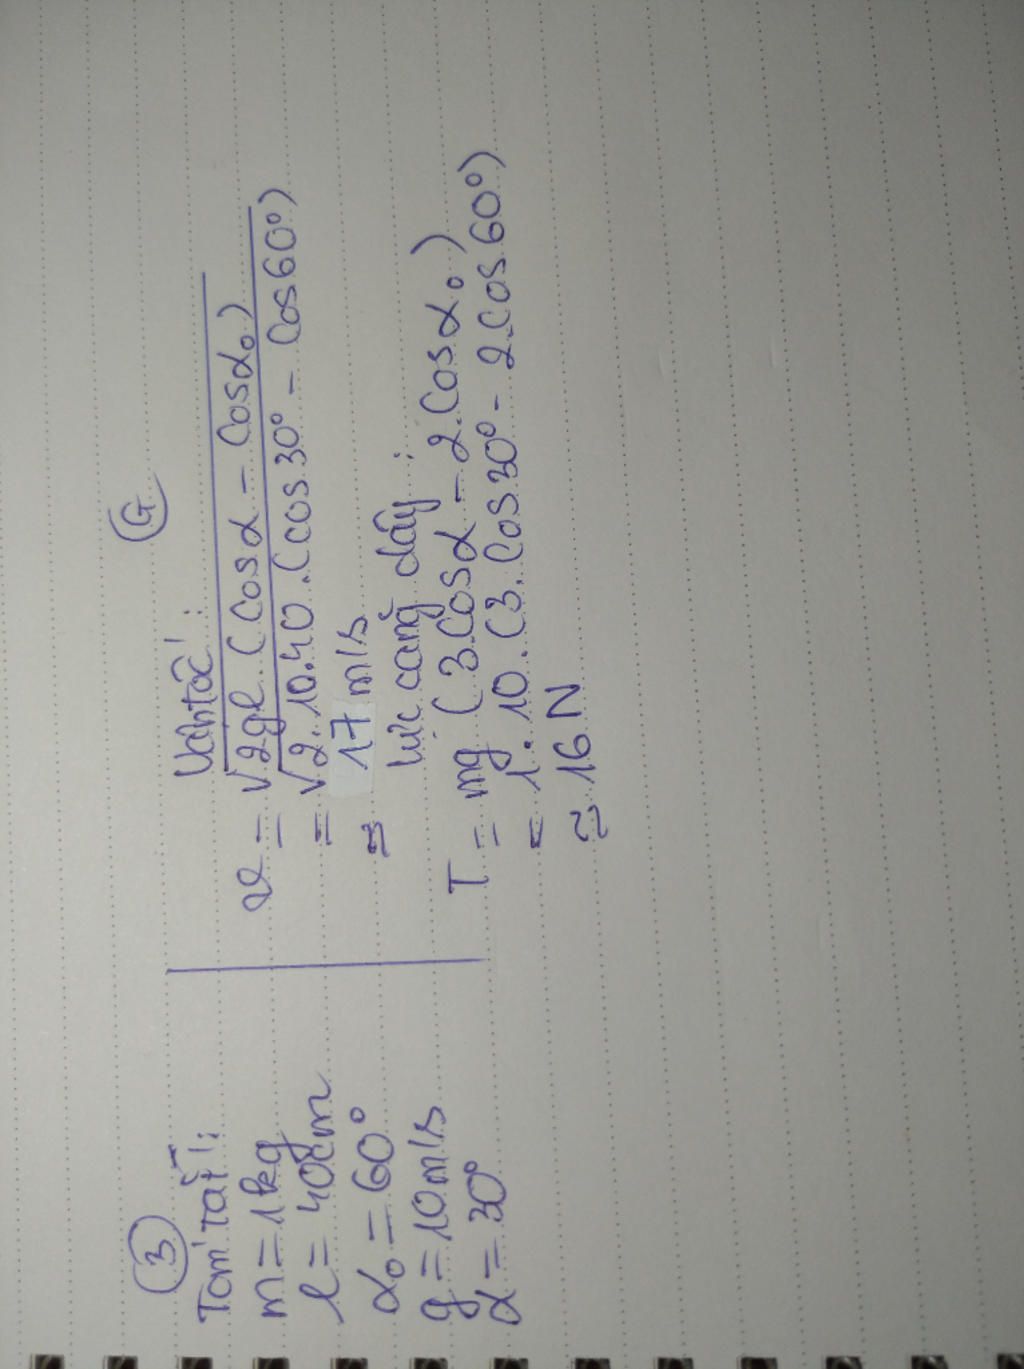 ③
Tóm tắt:
m = 1kg
l = 40cm
α₀ = 60°
g = 10m/s
α = 30°
G
Vận tốc:
v = √2gl (Cosα - Cosα₀)
= √2.10.40.(cos30° - Cos60°)
= 17 m/s
lực căng dây:
T = mg (3.Cosα - 2.Cosα₀)
= 1.10.(3.Cos30° - 2.Cos60°)
≈ 16 N